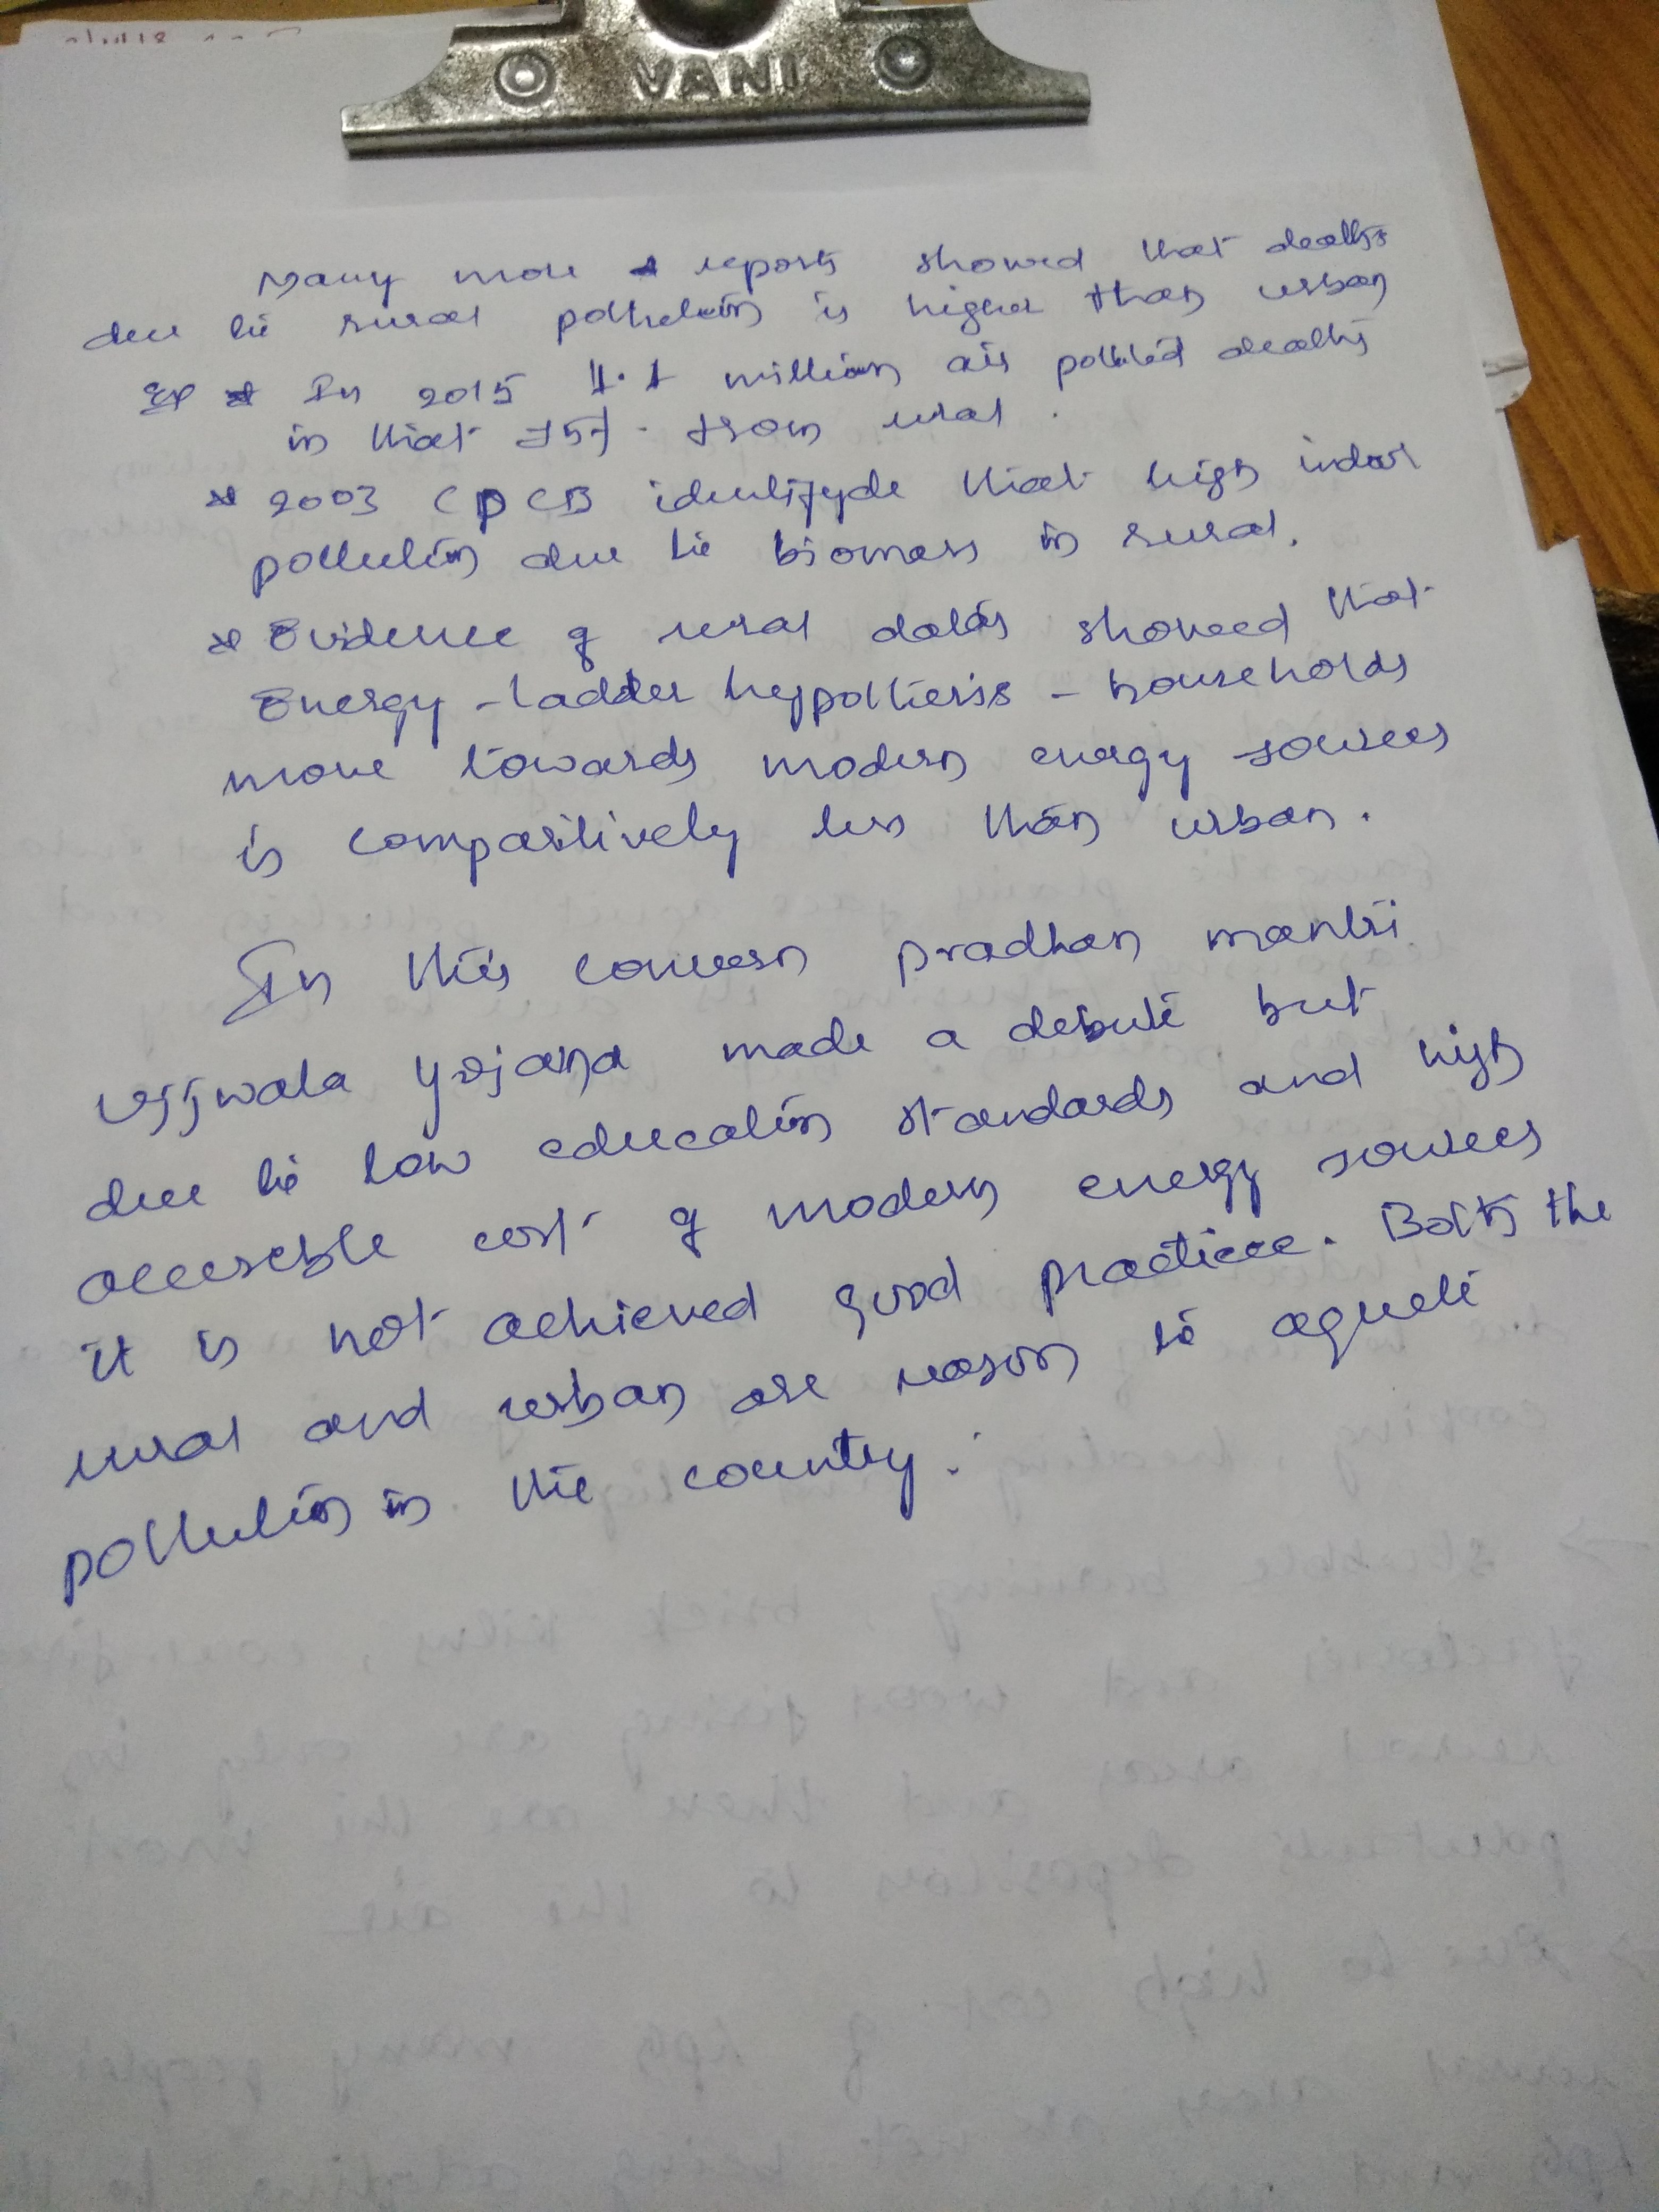 VANI
Many more reports showed that deaths
due to rural pollution is higher than urban
In 2015 1.1 million air polluted deaths
in that 75% from rural.
* 2003 CPCB identifyde that high indoor
pollution due to biomass in rural.
* Evidence of rural showed that
Energy-ladder hypothesis - households
move towards modern energy sources
is comparitively less than urban.
In this concern pradhan mantri
ujjwala yojana made a debute but
due to low education standards and high
accesseble cost of modern energy sources
it is not achieved good practice. Both the
rural and urban are reason to
pollution in the country.